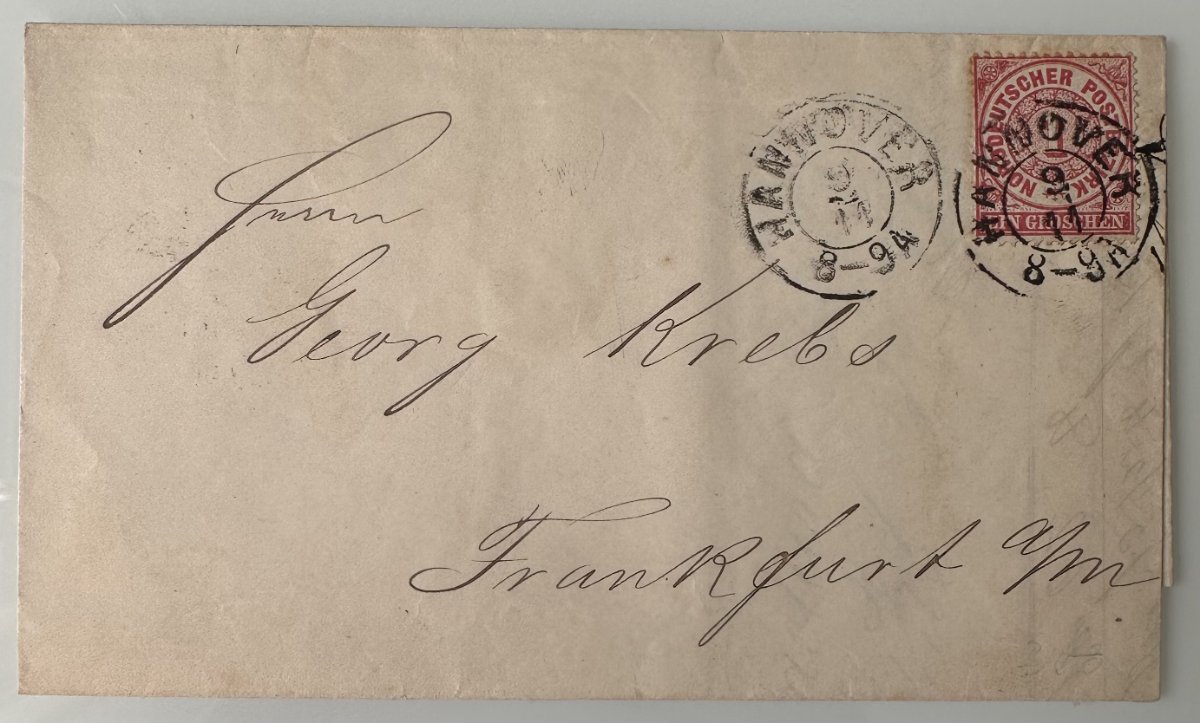 HANNOVER
9
11
8-9A
NORDDEUTSCHER POSTBEZIRK
1
EIN GROSCHEN
HANNOVER
9
11
8-9A
Herrn
Georg Krebs
Frankfurt a/m